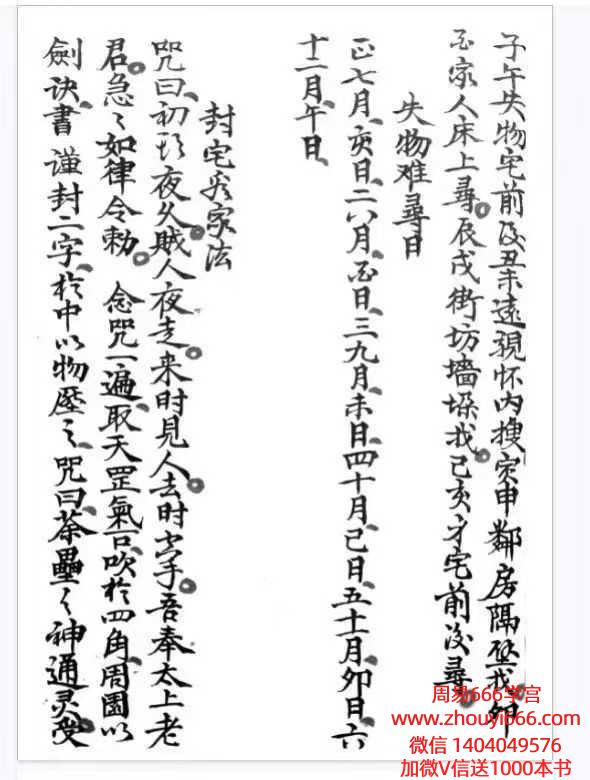 子午失物宅前及丑未遠覌怀内搜寅申鄰房隔壁找卯
酉家人床上尋辰戌街坊墻垛找己亥才宅前後尋
失物难尋日
正七月亥日二八月酉日三九月未日四十月巳日五十一月卯日六
十二月午日
封宅家法
咒曰初夜久賊人夜走来时見人去时吾奉太上老
君急々如律令勅 念咒一遍取天罡氣一口吹於四角周圍以
劍诀書謹封二字於中以物壓之咒曰荼壘々神通灵受
周易666学宫
www.zhouyi666.com
微信 1404049576
加微V信送1000本书